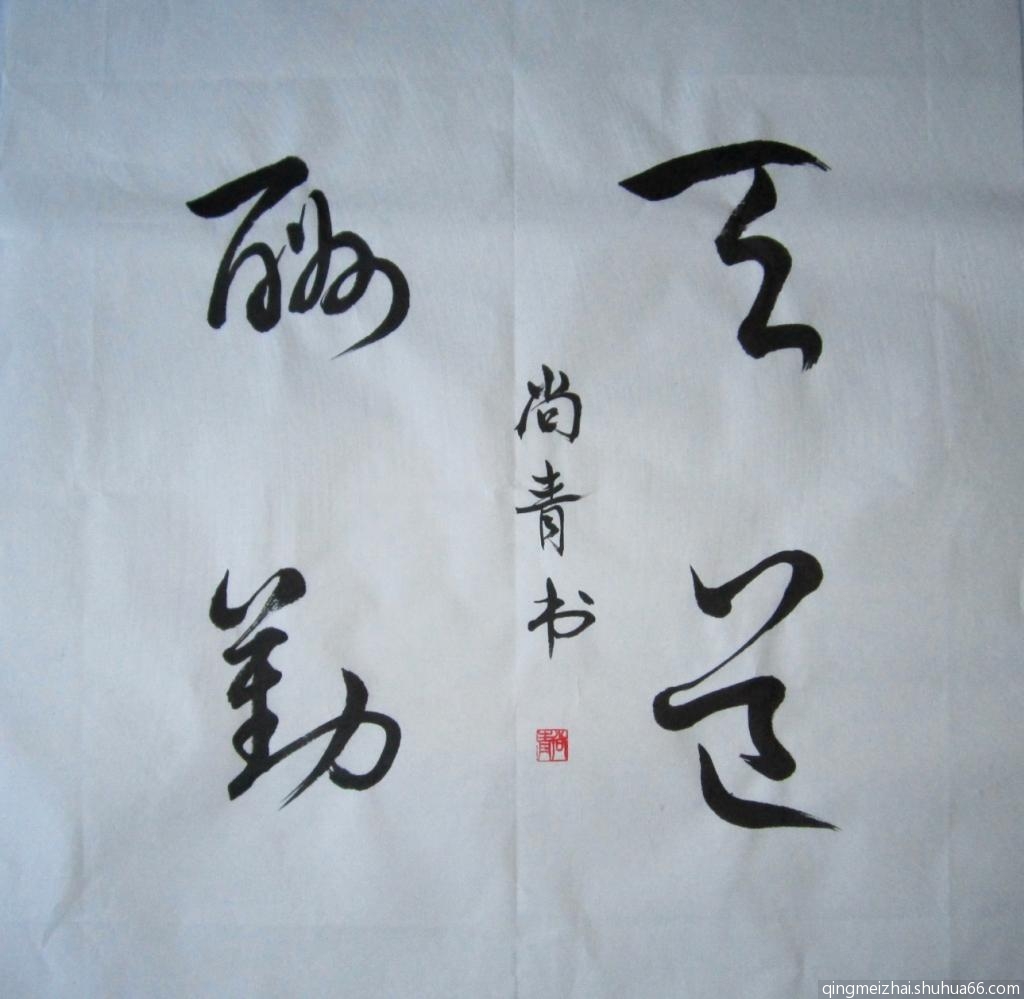 天道
酬勤
尚青书
尚青
qingmeizhai.shuhua66.com